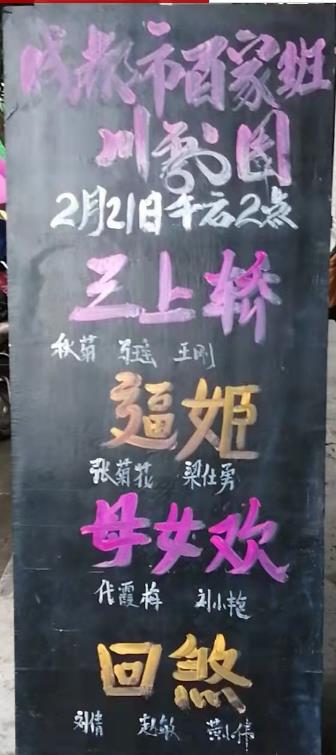 成都市百家班
川剧团
2月21日午后2点
三上轿
秋菊 马瑶 王刚
逼姬
张菊花 梁仕勇
母女欢
代霞梅 刘小艳
回煞
刘倩 赵敏 黄小伟